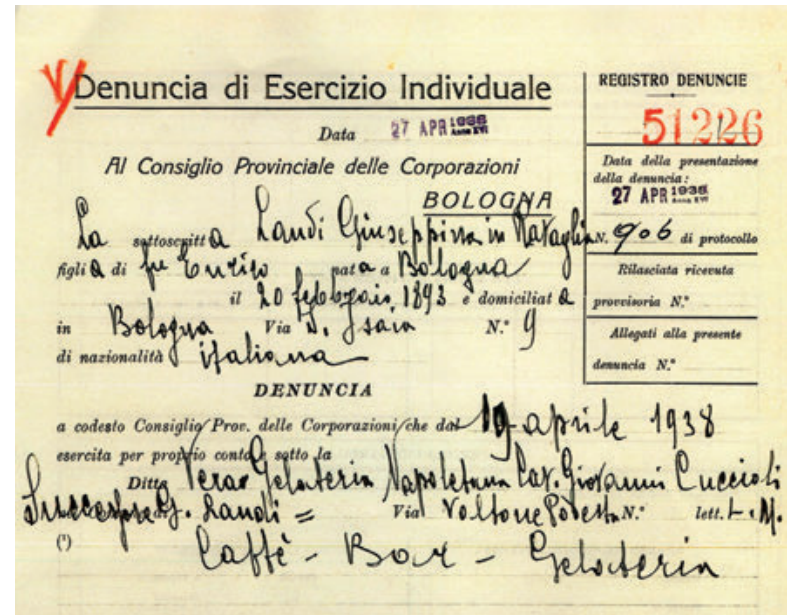 Denuncia di Esercizio Individuale
Data 27 APR 1938 Anno XVI
Al Consiglio Provinciale delle Corporazioni
BOLOGNA
La sottoscritta Landi Giuseppina in Rataglia
figlia di fu Enrico nata a Bologna
il 20 febbraio 1893 e domiciliata
in Bologna Via S. Isaia N.° 9
di nazionalità italiana
DENUNCIA
a codesto Consiglio Prov. delle Corporazioni che dal 19 aprile 1938
esercita per proprio conto e sotto la
Ditta Vera Gelateria Napoletana Cav. Giovanni Cuccioli
Successore G. Landi = Via Voltone Podestà N.° lett. L-M.
(¹) Caffè - Bar - Gelateria
REGISTRO DENUNCIE
51226
Data della presentazione
della denuncia:
27 APR 1938 Anno XVI
N. 906 di protocollo
Rilasciata ricevuta
provvisoria N.°
Allegati alla presente
denuncia N.°